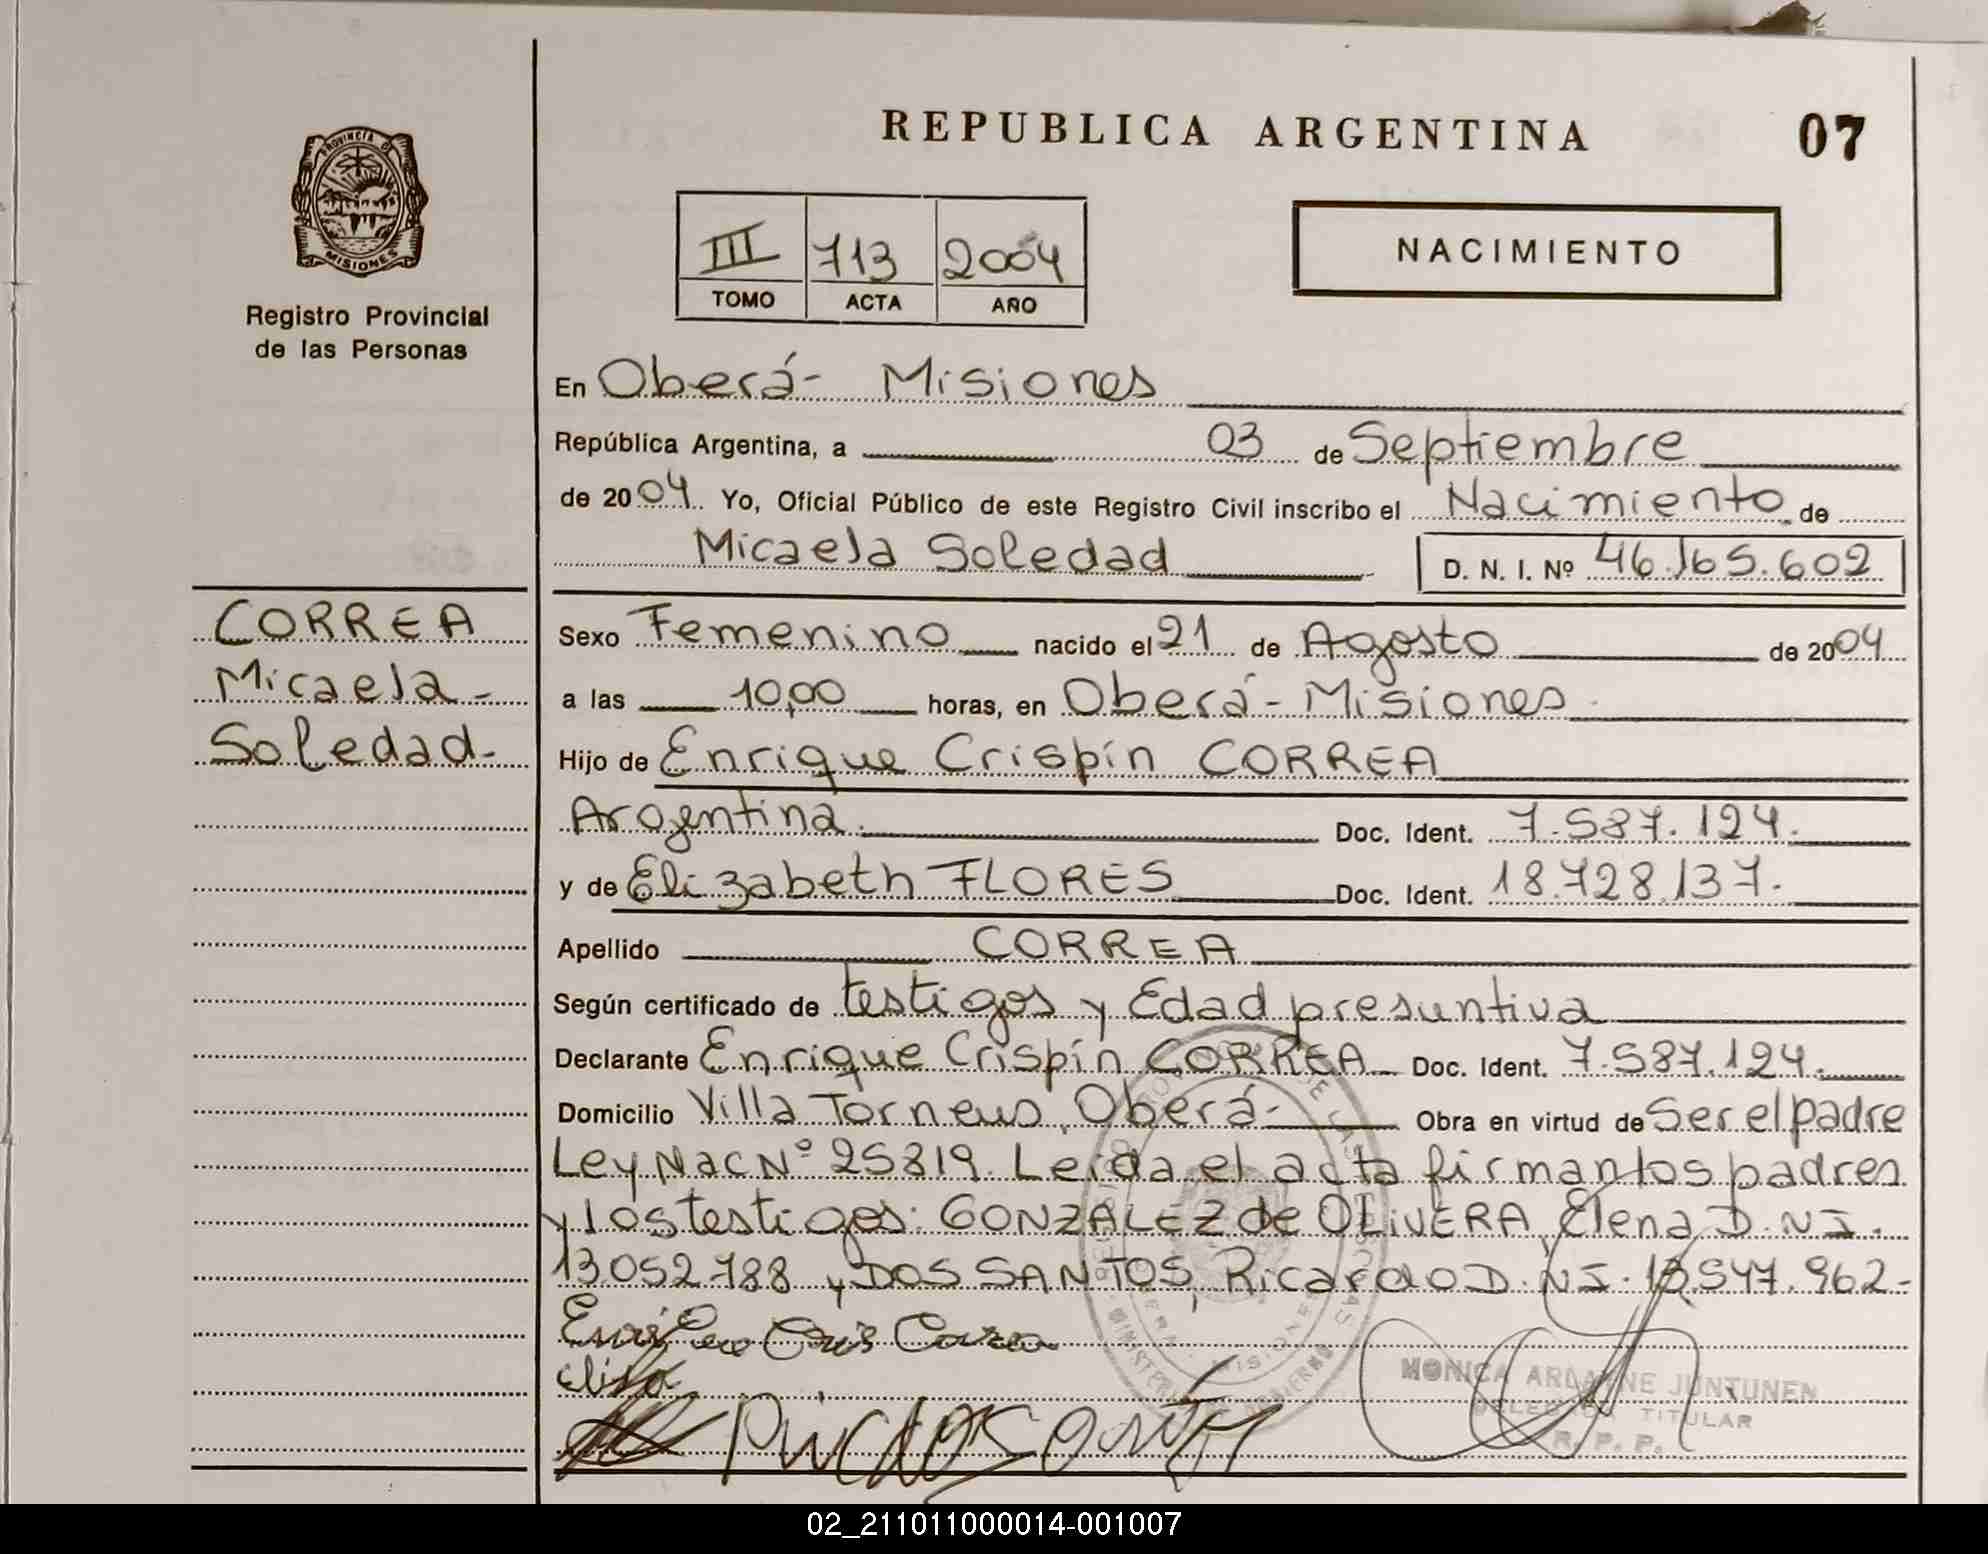 REPUBLICA ARGENTINA
07
PROVINCIA DE
MISIONES
Registro Provincial
de las Personas
III 713 2004
TOMO ACTA AÑO
NACIMIENTO
En Oberá- Misiones
República Argentina, a 03 de Septiembre
de 2004. Yo, Oficial Público de este Registro Civil inscribo el Nacimiento de
Micaela Soledad D. N. I. Nº 46.165.602
CORREA
Micaela-
Soledad-
Sexo Femenino nacido el 21 de Agosto de 2004
a las 10,00 horas, en Oberá- Misiones
Hijo de Enrique Crispín CORREA
Argentina. Doc. Ident. 7.587.124.
y de Elizabeth FLORES Doc. Ident. 18.728.137.
Apellido CORREA
Según certificado de testigos y Edad presuntiva
Declarante Enrique Crispín CORREA Doc. Ident. 7.587.124.
Domicilio Villa Torneus, Oberá- Obra en virtud de Ser el padre
Ley Nac Nº 25819. Leída el acta firman los padres
y los testigos: GONZALEZ de OLIVERA, Elena D.N.I.
13.052.788 y DOS SANTOS, Ricardo D.N.I. 13.547.962-
MONICA ARDAYNE JUNTUNEN
DELEGADA TITULAR
R. P. P.
02_211011000014-001007